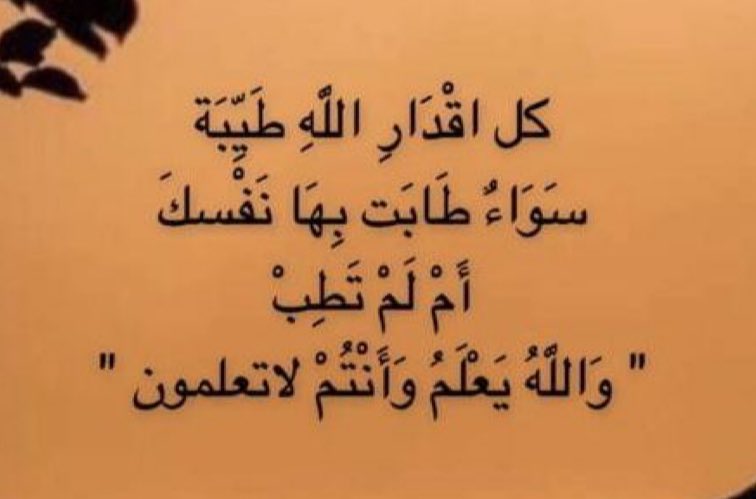 كل اقْدَارِ اللَّهِ طَيِّبَة
سَوَاءٌ طَابَت بِهَا نَفْسكَ
أَمْ لَمْ تَطِبْ
" وَاللَّهُ يَعْلَمُ وَأَنْتُمْ لاتعلمون "